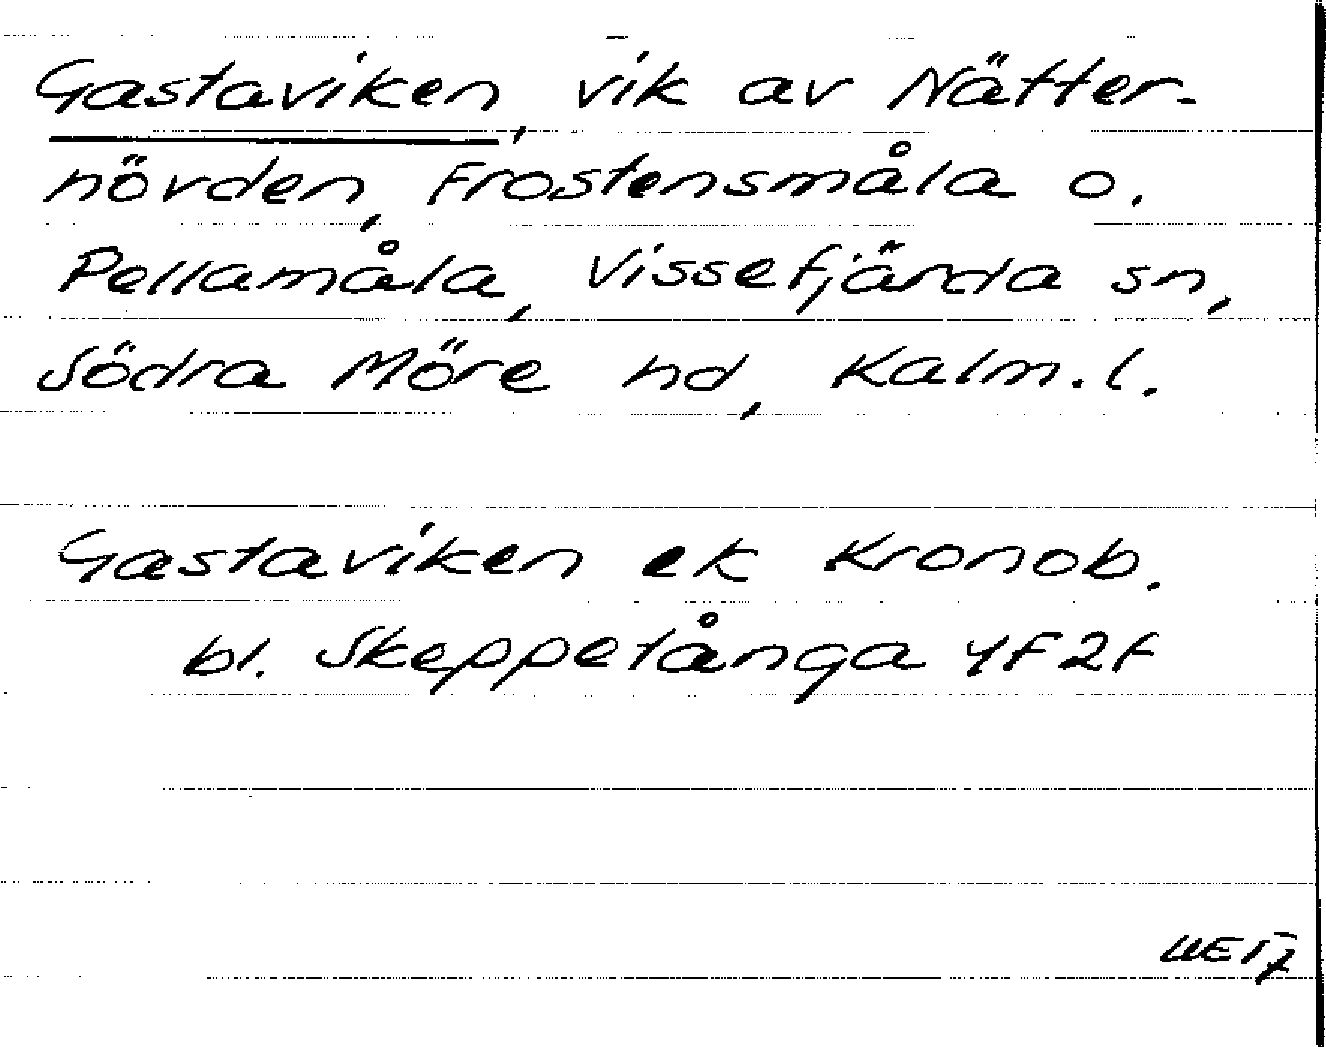 Gastaviken, vik av Nätter-
növden, Frostensmåla o.
Pellamåla, Vissefjärda sn,
Södra Möre hd, Kalm.l.
Gastaviken ek Kronob.
bl. Skeppetånga 4F2f